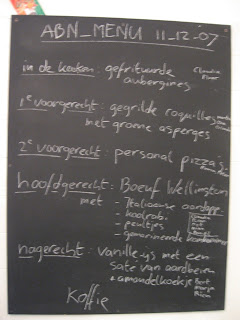 ABN_MENU 11-12-07
in de keuken: gefrituurde
aubergines
1e voorgerecht: gegrilde coquilles
met groene asperges
2e voorgerecht: personal pizza's
hoofdgerecht: Boeuf Wellington
met - Italiaanse aardapp
- koolrabi
- peultjes
- gemarineerde
nagerecht: vanille-ijs met een
sate van aardbeien
+ amandelkoekje
Koffie